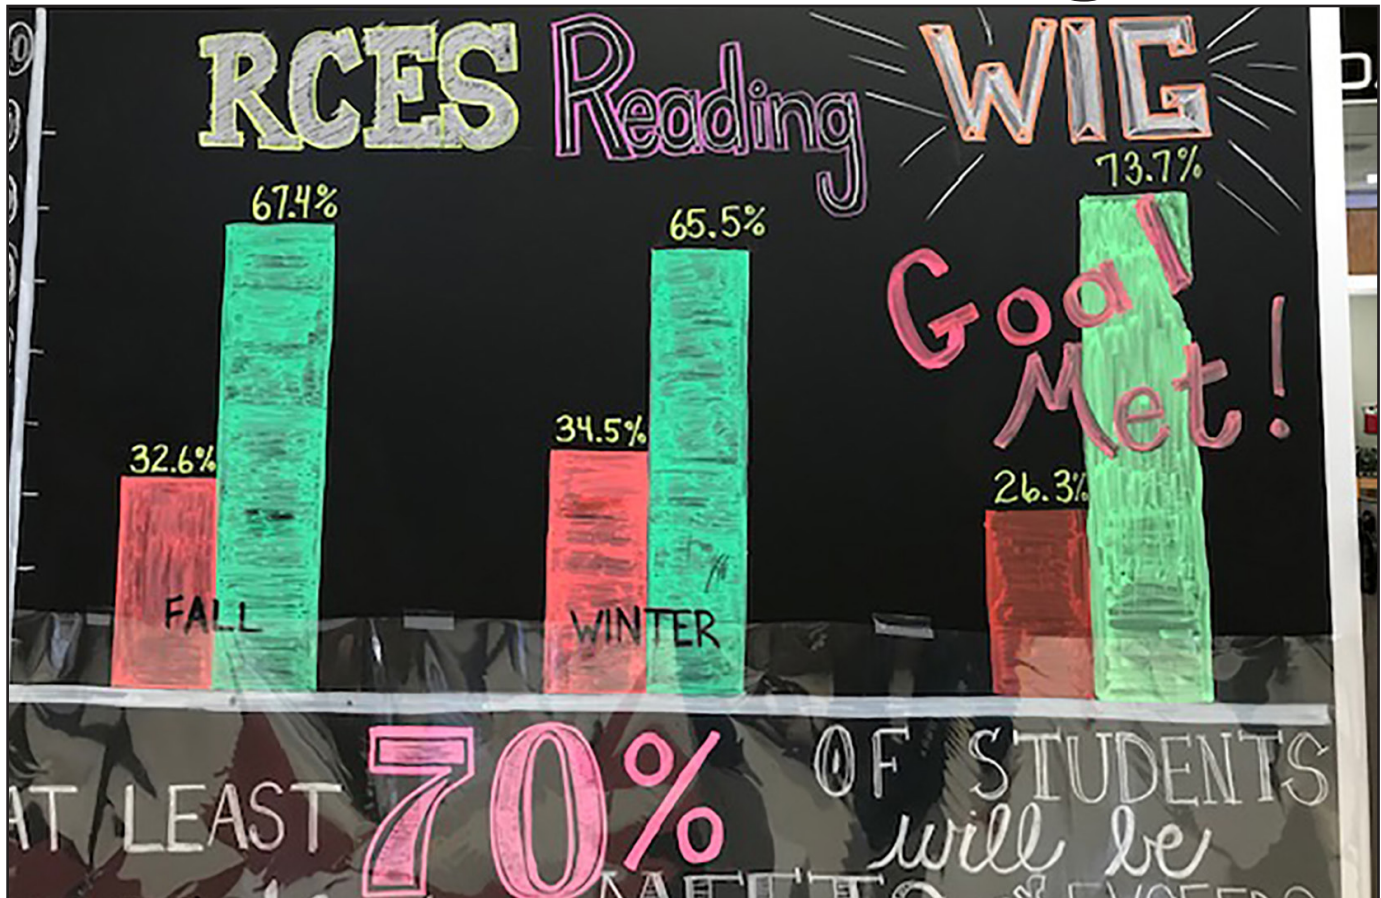 RCES Reading WIG
67.4%
65.5%
73.7%
Goal
Met!
32.6%
34.5%
26.3%
FALL
WINTER
AT LEAST 70% OF STUDENTS
will be